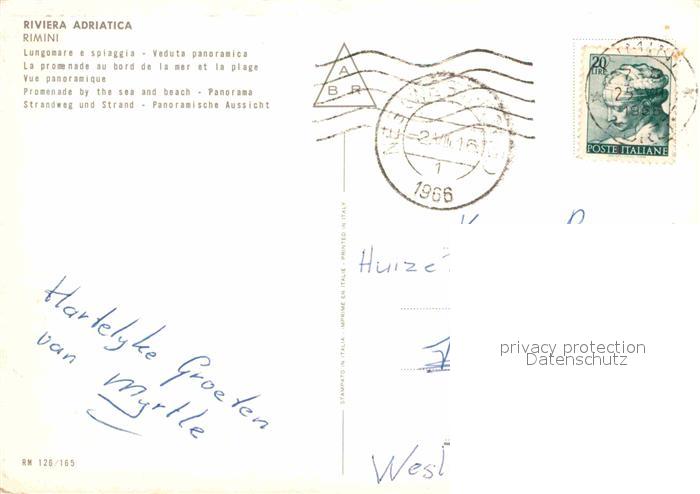 RIVIERA ADRIATICA
RIMINI
Lungomare e spiaggia - Veduta panoramica
La promenade au bord de la mer et la plage
Vue panoramique
Promenade by the sea and beach - Panorama
Strandweg und Strand - Panoramische Aussicht
A
B R
1
1966
20
LIRE
POSTE ITALIANE
STAMPATO IN ITALIA - IMPRIMÉ EN ITALIE - PRINTED IN ITALY
Huize
Hartelyke Groeten
van Myrtle
West
privacy protection
Datenschutz
RM 126/165